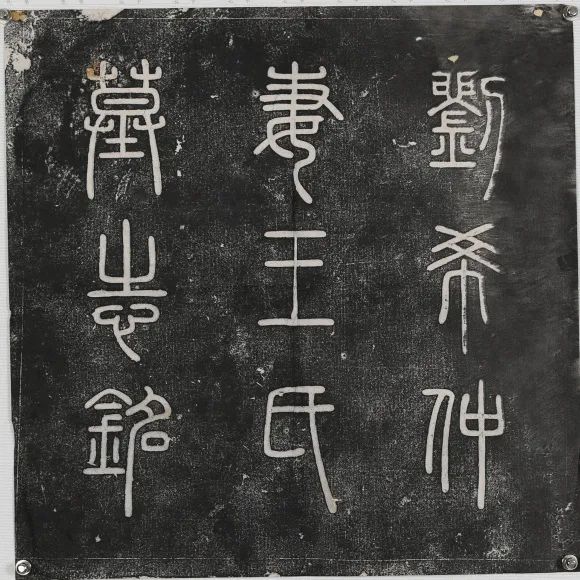 劉希仲
妻王氏
墓志銘